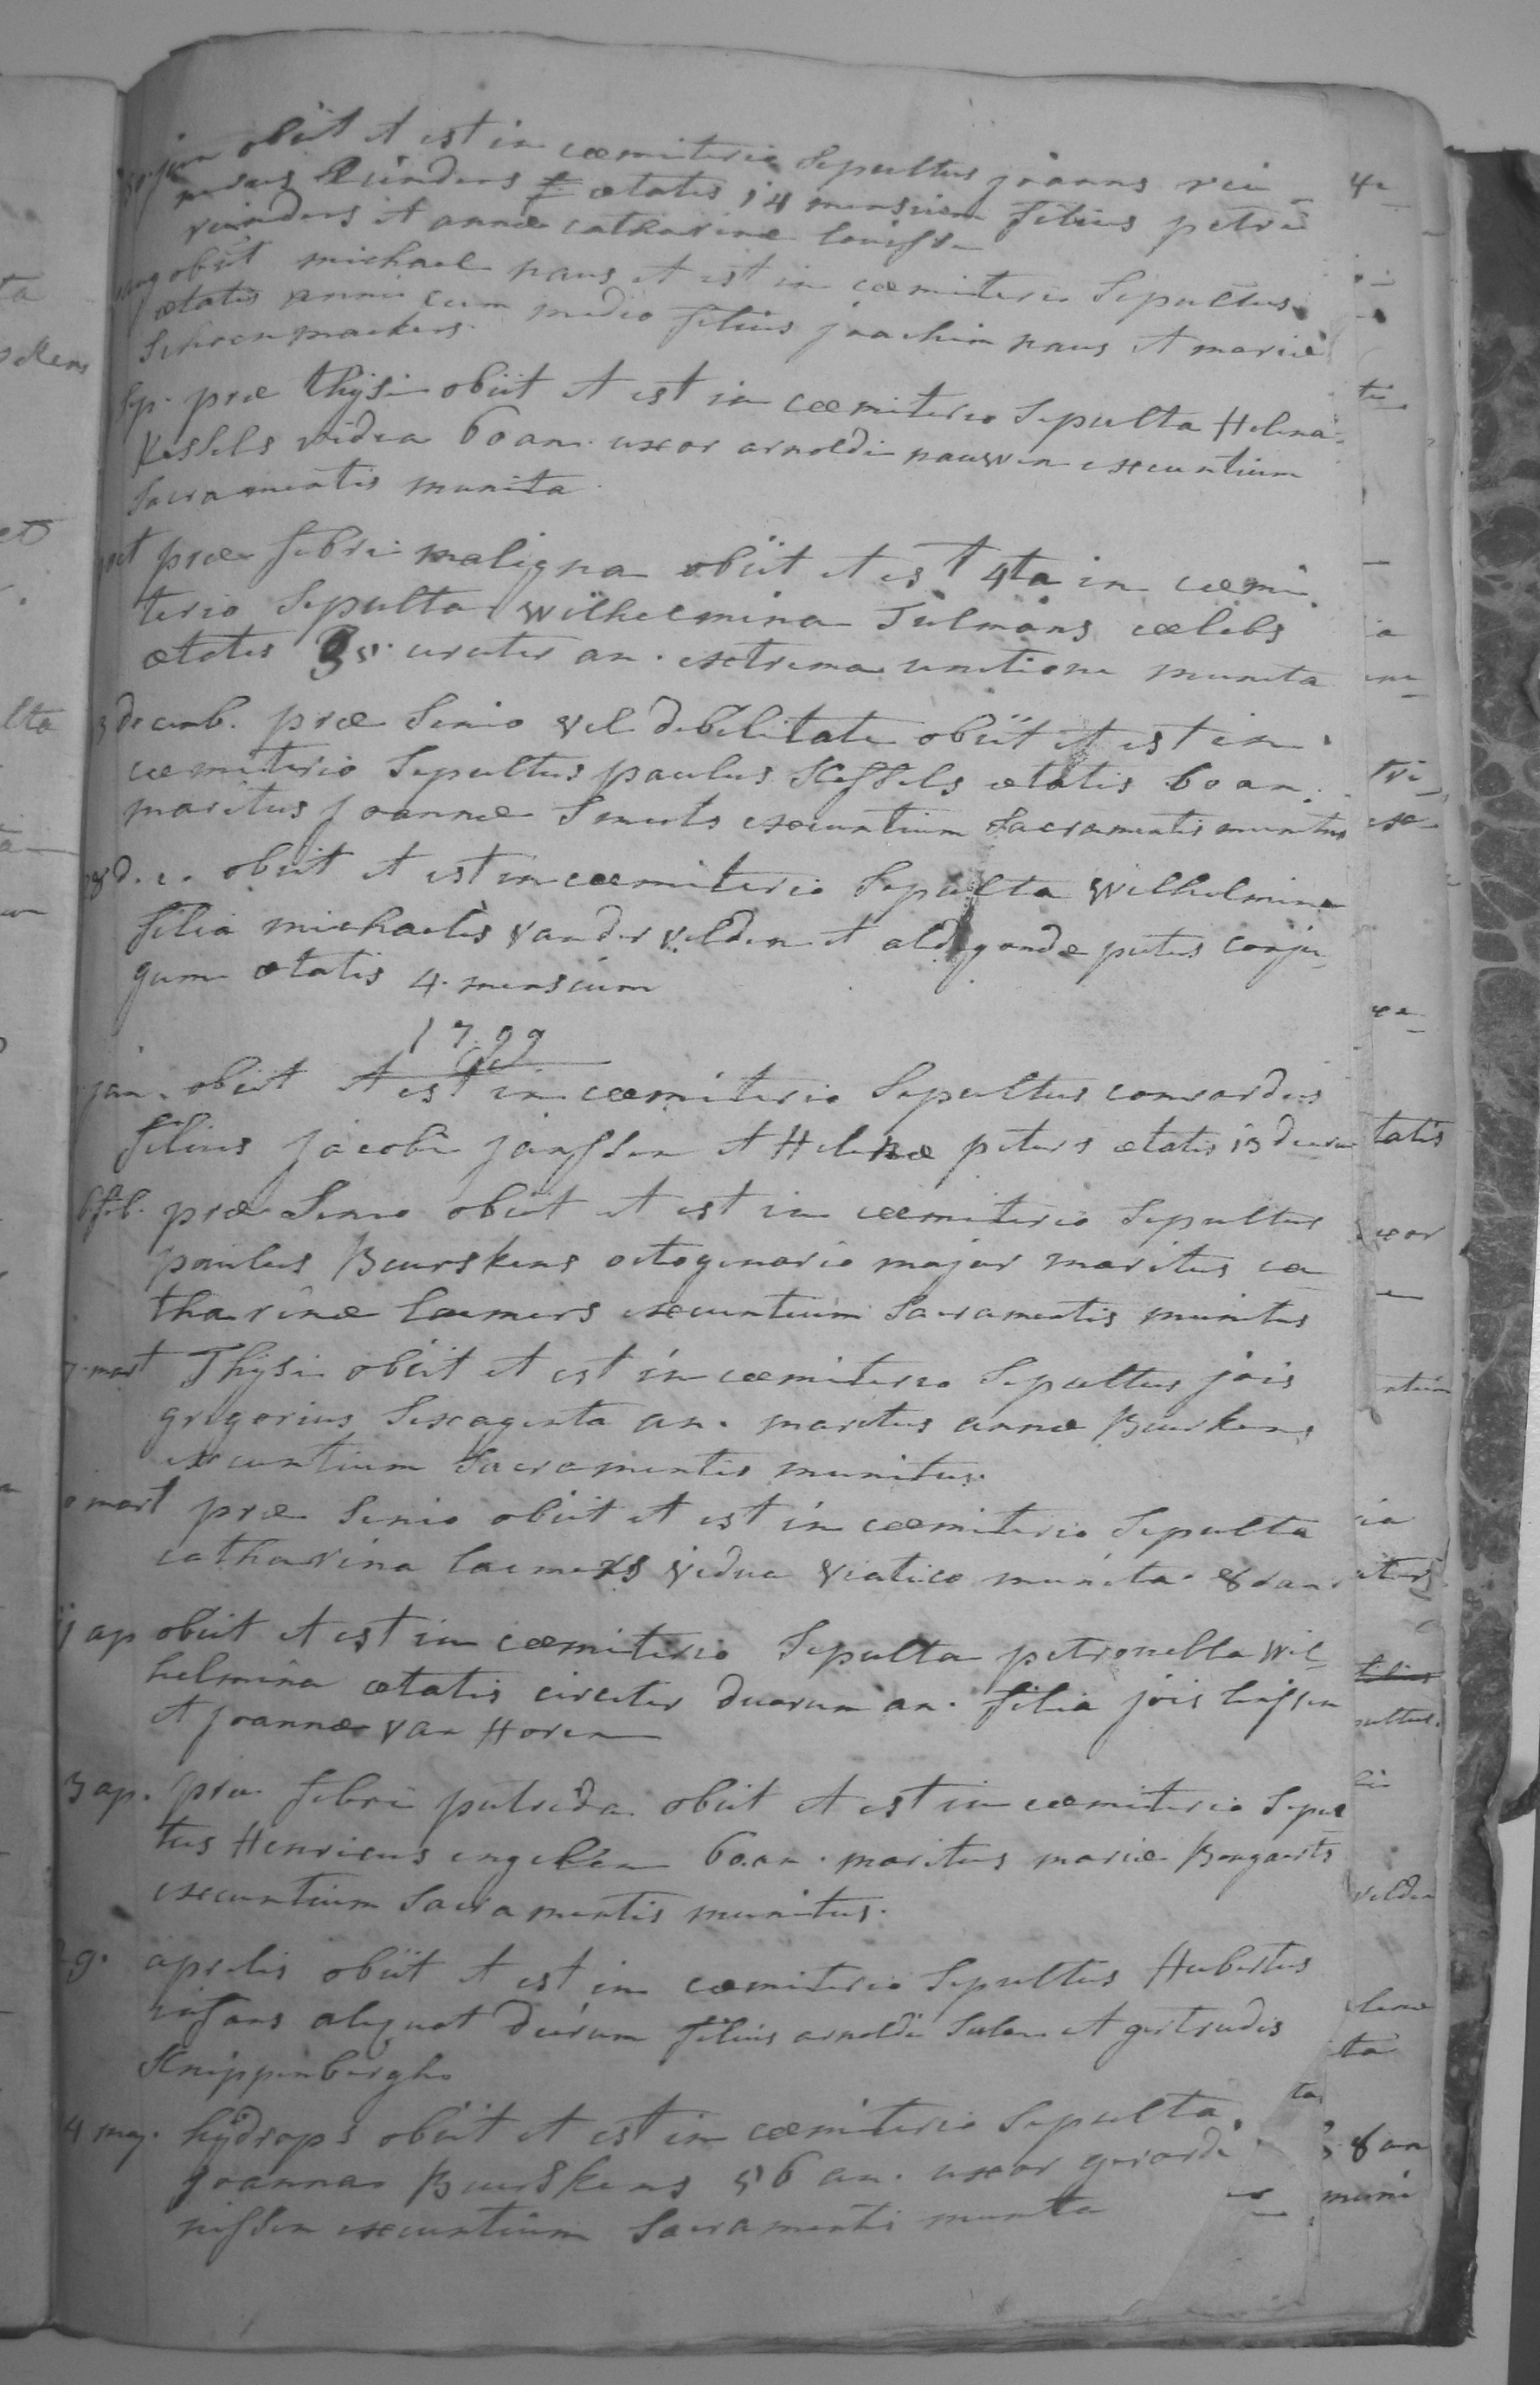 jun obiit et est in cœmiterio Sepultus joanns rei
nerus Reinders ætatis 14 mensium filius petri
reinders et annæ catharinæ
aug obiit michael naus et est in cœmiterio Sepultus
ætatis anni cum medio filius joachim naus et mariæ
Schoenmackers.
Sep. præ thysi obiit et est in cœmiterio Sepulta Helena
Kessels vidua 60 an. uxor arnoldi nauwen exeuntium
Sacramentis munita.
oct præ febri maligna obiit et est 4ta in cœmi
terio Sepulta Wilhelmina Tilmans cælebs
ætatis circiter an. extrema unctione munita
3 decemb. præ Senio vel debilitate obiit et est in
cœmiterio Sepultus paulus Kessels ætatis 60 an.
maritus Joannæ Smeets exeuntium Sacramentis munitus
28 d.c. obiit et est in cœmiterio Sepulta Wilhelmina
filia michaelis van der velden et aldegondæ peters conju
gum ætatis 4. mensium
1799
jan. obiit et est in cœmiterio Sepultus conrardus
filius jacobi janssen et Helenæ peters ætatis 13 dierum
6 feb. præ Senio obiit et est in cœmiterio Sepultus
paulus Beurskens octogenario major maritus ca
tharinæ laemers exeuntium Sacramentis munitus
7. mart Thysi obiit et est in cœmiterio Sepultus jois
gregorius Sexaginta an. maritus annæ Beurkens
exeuntium Sacramentis munitus.
mart præ Senio obiit et est in cœmiterio Sepulta
catharina laemers vidua viatico munita 80 an.
ap obiit et est in cœmiterio Sepulta petronella wil
helmina ætatis circiter duarum an. filia jois linssen
et Joannæ van Horen
3 ap. præ febri putrida obiit et est in cœmiterio Sepul
tus Henricus engelen 60 an. maritus mariæ Bongaerts
exeuntium Sacramentis munitus.
29. aprilis obiit et est in cœmiterio Sepultus Hubertus
infans aliquot dierum filius arnoldi et gertrudis
Knippenbergh
4 may. hydrops obiit et est in cœmiterio Sepulta
Joanna Beurskens 56 an. uxor gerardi
nissen exeuntium Sacramentis munita